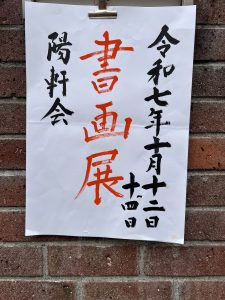 令和七年十月十二日
十四日
書画展
陽軒会